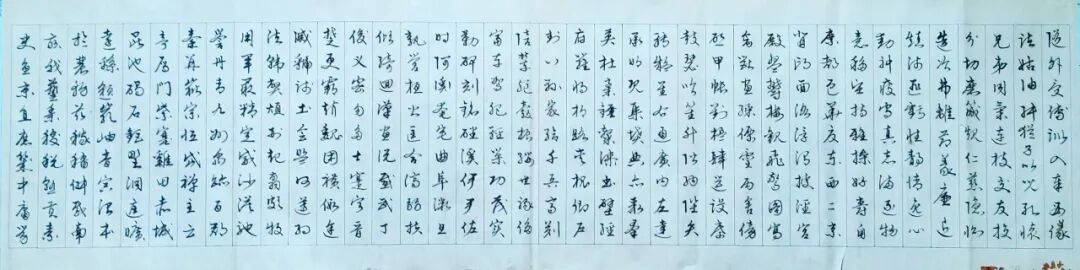 隨外受傅訓入奉母儀
諸姑伯叔猶子比兒孔懷
兄弟同氣連枝交友投
分切磨箴規仁慈隱惻
造次弗離節義廉退
顛沛匪虧性靜情逸心
動神疲守真志滿逐物
意移堅持雅操好爵自
縻都邑華夏東西二京
背邙面洛浮渭據涇宮
殿盤鬱樓觀飛驚圖寫
禽獸畫綵仙靈丙舍傍
啟甲帳對楹肆筵設席
鼓瑟吹笙升階納陛弁
轉疑星右通廣內左達
承明既集墳典亦聚群
英杜稿鍾隸漆書壁經
府羅將相路俠槐卿戶
封八縣家給千兵高冠
陪輦驅轂振纓世祿侈
富車駕肥輕策功茂實
勒碑刻銘磻溪伊尹佐
時阿衡奄宅曲阜微旦
孰營桓公匡合濟弱扶
傾綺回漢惠說感武丁
俊乂密勿多士寔寧晉
楚更霸趙魏困橫假途
滅虢踐土會盟何遵約
法韓弊煩刑起翦頗牧
用軍最精宣威沙漠馳
譽丹青九州禹跡百郡
秦并嶽宗恆岱禪主云
亭雁門紫塞雞田赤城
昆池碣石鉅野洞庭曠
遠綿邈巖岫杳冥治本
於農務茲稼穡俶載南
畝我藝黍稷稅熟貢素
史魚秉直庶幾中庸勞